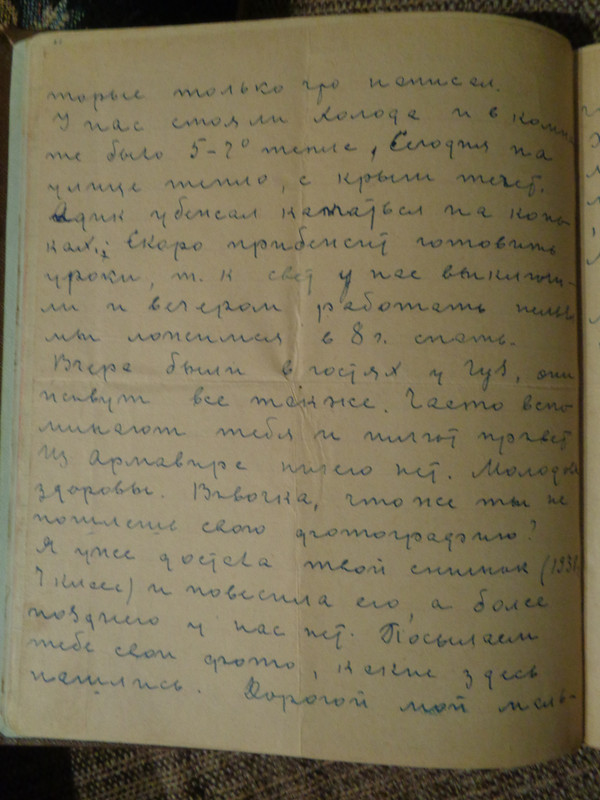 торые только что написал.
У нас стояли холода и в комна
те было 5-7° тепла, Сегодня на
улице тепло, с крыш течет.
Адик убежал кататься на конь
ках, Скоро прибежит готовить
уроки, т. к свет у нас выключи-
ли и вечером работать нельзя
мы ложимся в 8 г. спать.
Вчера были в гостях у они
живут все также. Часто вспо
минают тебя и шлют привет
Из Армавира ничего нет.
здоровы. Вовочка, что же ты не
пошлешь свою фотографию?
Я уже достала твой снимок (1938
7 класс) и повесила его, а более
позднего у нас нет. Посылаем
тебе свои фото, какие здесь
нашлись. Дорогой мой маль-